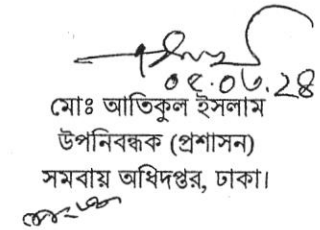 মোঃ আতিকুল ইসলাম
উপনিবন্ধক (প্রশাসন)
সমবায় অধিদপ্তর, ঢাকা।